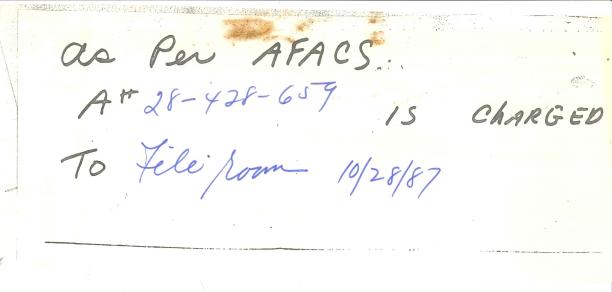 as Per AFACS...
A# 28-428-659 IS CHARGED
TO File room 10/28/87